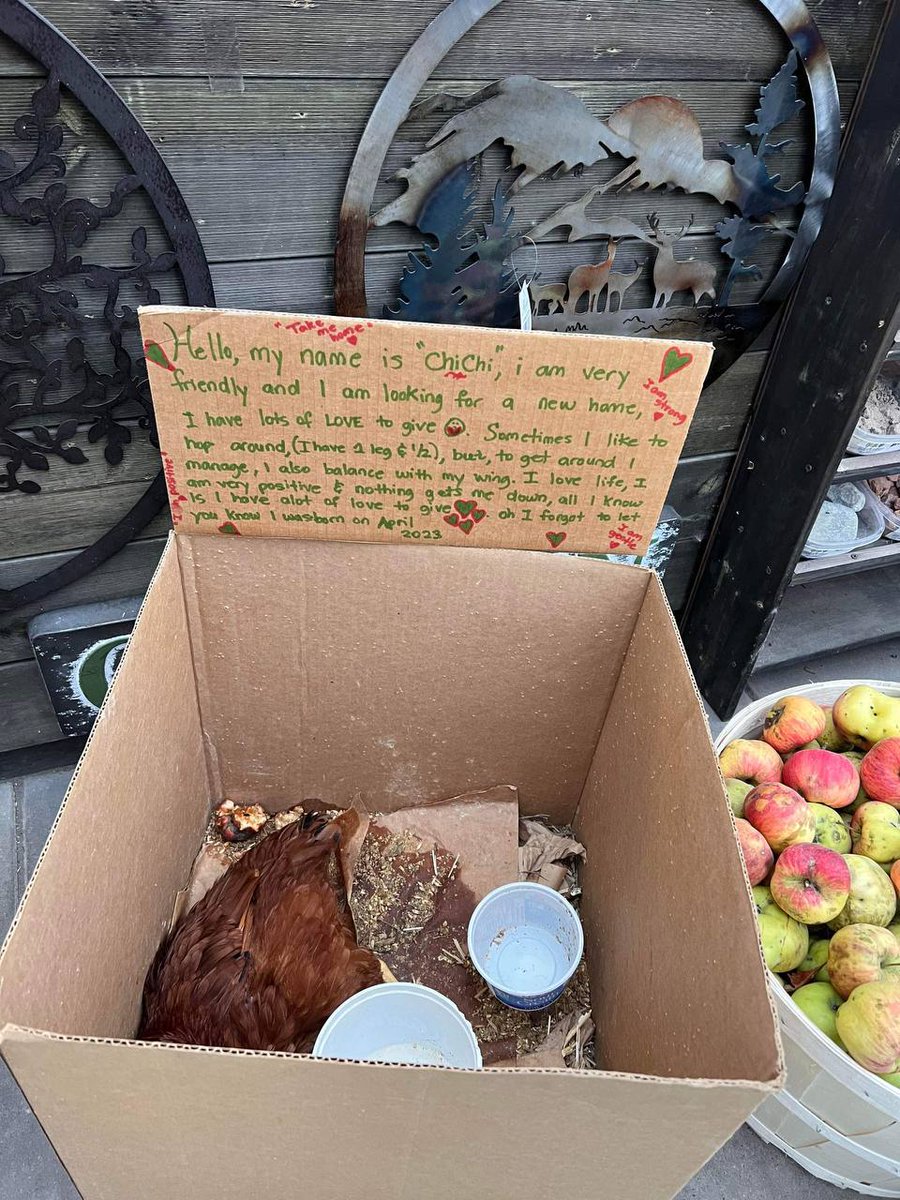 "Take me home"
Hello, my name is "ChiChi", i am very
friendly and I am looking for a new home,
I have lots of LOVE to give. Sometimes I like to
hop around, (I have 1 leg & 1/2), but, to get around I
manage, I also balance with my wing. I love life, I
am very positive & nothing gets me down, all I know
is I have alot of love to give oh I forgot to let
you know I was born on April
2023
I am strong
I am positive
I am gentle